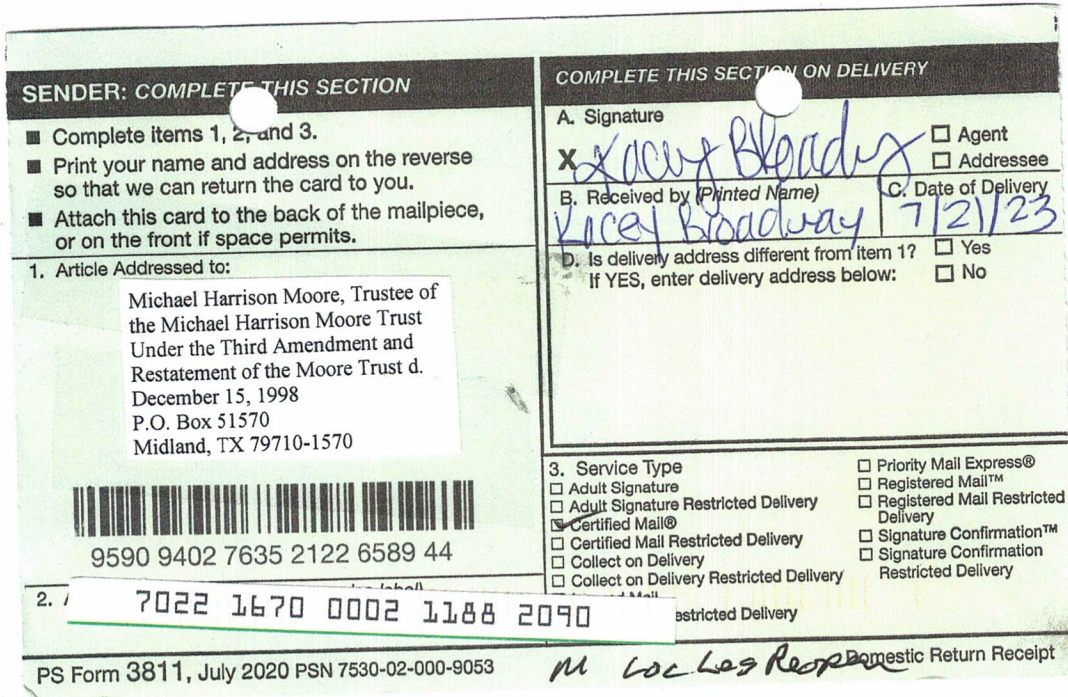 SENDER: COMPLETE THIS SECTION
■ Complete items 1, 2, and 3.
■ Print your name and address on the reverse
so that we can return the card to you.
■ Attach this card to the back of the mailpiece,
or on the front if space permits.
1. Article Addressed to:
Michael Harrison Moore, Trustee of
the Michael Harrison Moore Trust
Under the Third Amendment and
Restatement of the Moore Trust d.
December 15, 1998
P.O. Box 51570
Midland, TX 79710-1570
9590 9402 7635 2122 6589 44
2.
7022 1670 0002 1188 2090
PS Form 3811, July 2020 PSN 7530-02-000-9053
COMPLETE THIS SECTION ON DELIVERY
A. Signature
X Kacey Broadway
☐ Agent
☐ Addressee
B. Received by (Printed Name)
Kacey Broadway
C. Date of Delivery
7/21/23
D. Is delivery address different from item 1? ☐ Yes
If YES, enter delivery address below: ☐ No
3. Service Type
☐ Adult Signature
☐ Adult Signature Restricted Delivery
☑ Certified Mail®
☐ Certified Mail Restricted Delivery
☐ Collect on Delivery
☐ Collect on Delivery Restricted Delivery
Mail
estricted Delivery
☐ Priority Mail Express®
☐ Registered Mail™
☐ Registered Mail Restricted
Delivery
☐ Signature Confirmation™
☐ Signature Confirmation
Restricted Delivery
M Loc Leg
Domestic Return Receipt